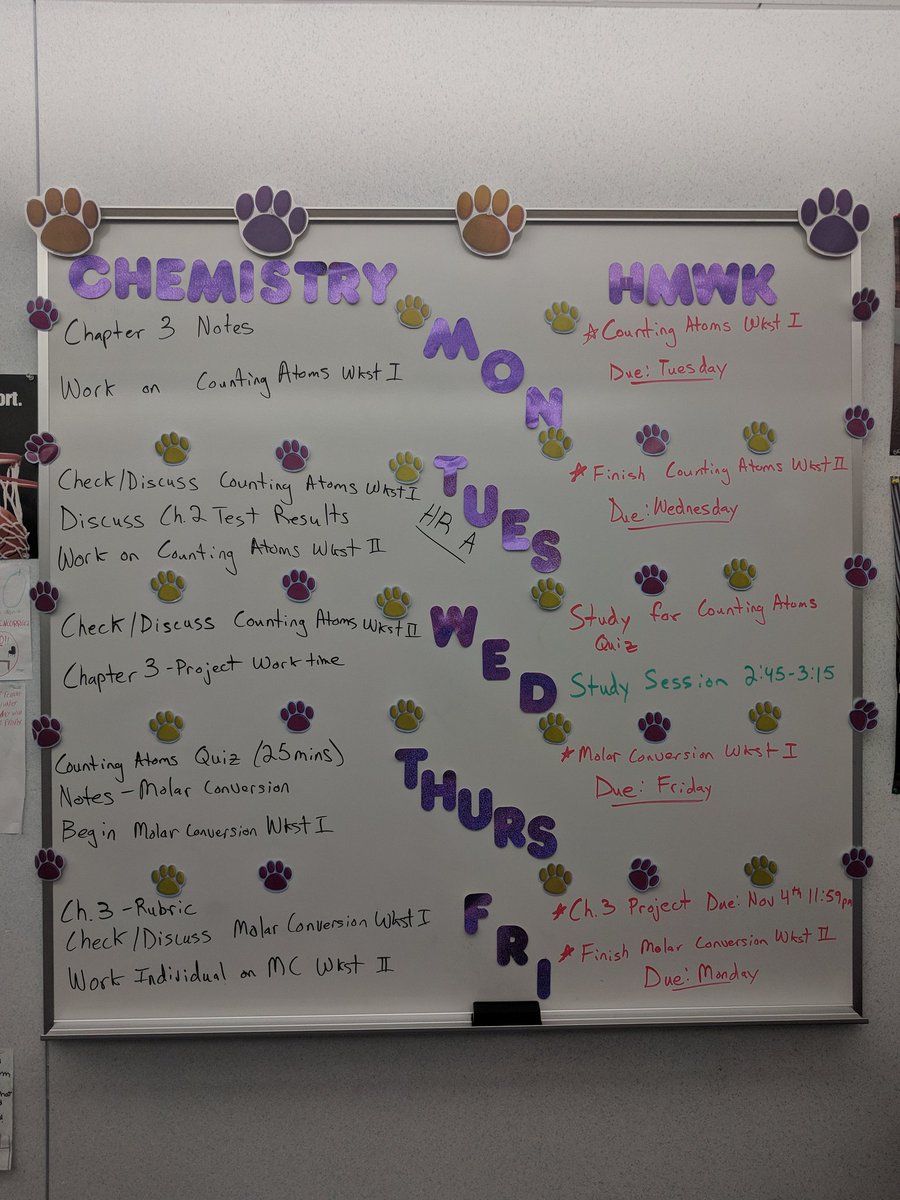 CHEMISTRY
HMWK
MON
Chapter 3 Notes
Work on Counting Atoms Wkst I
☆ Counting Atoms Wkst I
Due: Tuesday
TUES
Check/Discuss Counting Atoms Wkst I
Discuss Ch.2 Test Results
Work on Counting Atoms Wkst II
HR A
★ Finish Counting Atoms Wkst II
Due: Wednesday
WED
Check/Discuss Counting Atoms Wkst II
Chapter 3 - Project Work time
Study for Counting Atoms
Quiz
Study Session 2:45-3:15
THURS
Counting Atoms Quiz (25mins)
Notes - Molar Conversion
Begin Molar Conversion Wkst I
★ Molar Conversion Wkst I
Due: Friday
FRI
Ch.3 - Rubric
Check/Discuss Molar Conversion Wkst I
Work Individual on MC Wkst II
★ Ch.3 Project Due: Nov 4th 11:59pm
★ Finish Molar Conversion Wkst II
Due: Monday
ort.